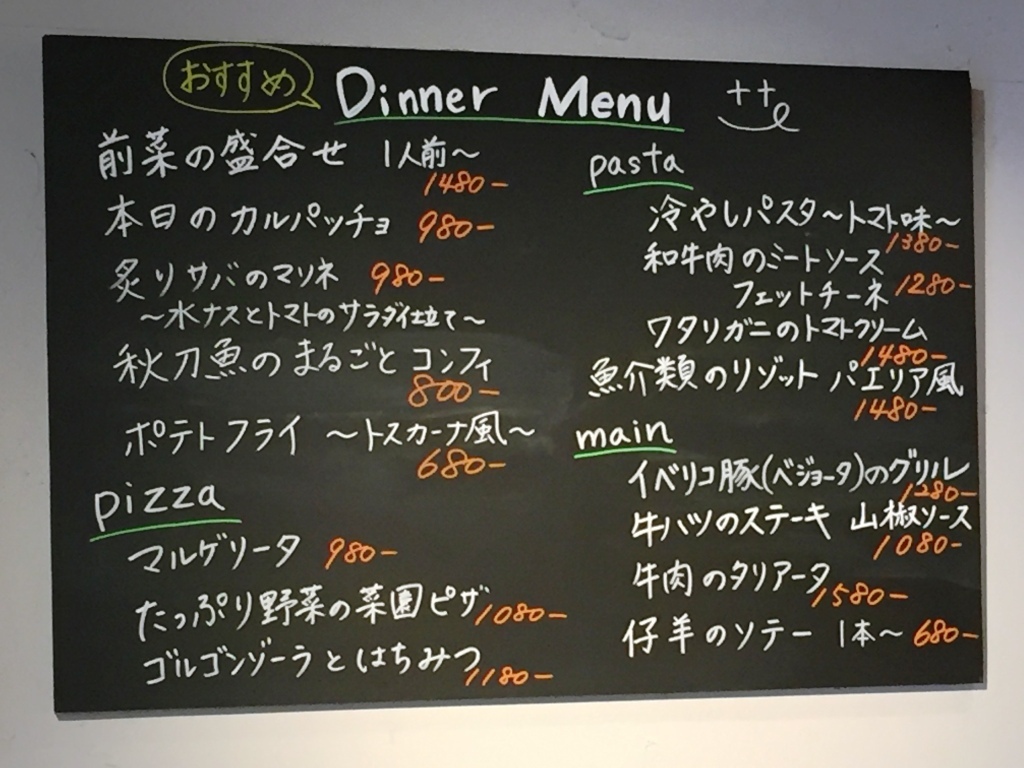 おすすめ Dinner Menu
前菜の盛合せ 1人前〜
1480-
本日のカルパッチョ 980-
炙りサバのマリネ 980-
〜水ナスとトマトのサラダ仕立て〜
秋刀魚のまるごとコンフィ
800-
ポテトフライ 〜トスカーナ風〜
680-
pizza
マルゲリータ 980-
たっぷり野菜の菜園ピザ 1080-
ゴルゴンゾーラとはちみつ
1180-
pasta
冷やしパスタ〜トマト味〜
1380-
和牛肉のミートソース
フェットチーネ 1280-
ワタリガニのトマトクリーム
1480-
魚介類のリゾット パエリア風
1480-
main
イベリコ豚(ベジョータ)のグリル
1280-
牛ハツのステーキ 山椒ソース
1080-
牛肉のタリアータ
1580-
仔羊のソテー 1本〜 680-